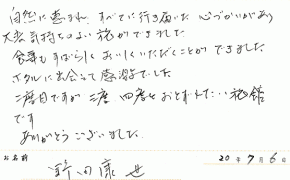 自然に恵まれ すべてに行き届いた 心づかいがあり
大変気持ちのよい旅ができました
食事もすばらしくおいしくいただくことができました
ホタルに出会えて感激でした
二度目ですが 三度 四度とおとずれたい旅館
です
ありがとうございました
お名前 野田康世 20年7月6日